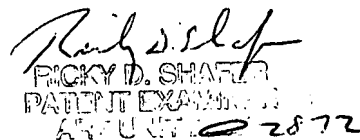 Ricky D. Shafer
RICKY D. SHAFER
PATENT EXAMINER
ART UNIT 2872